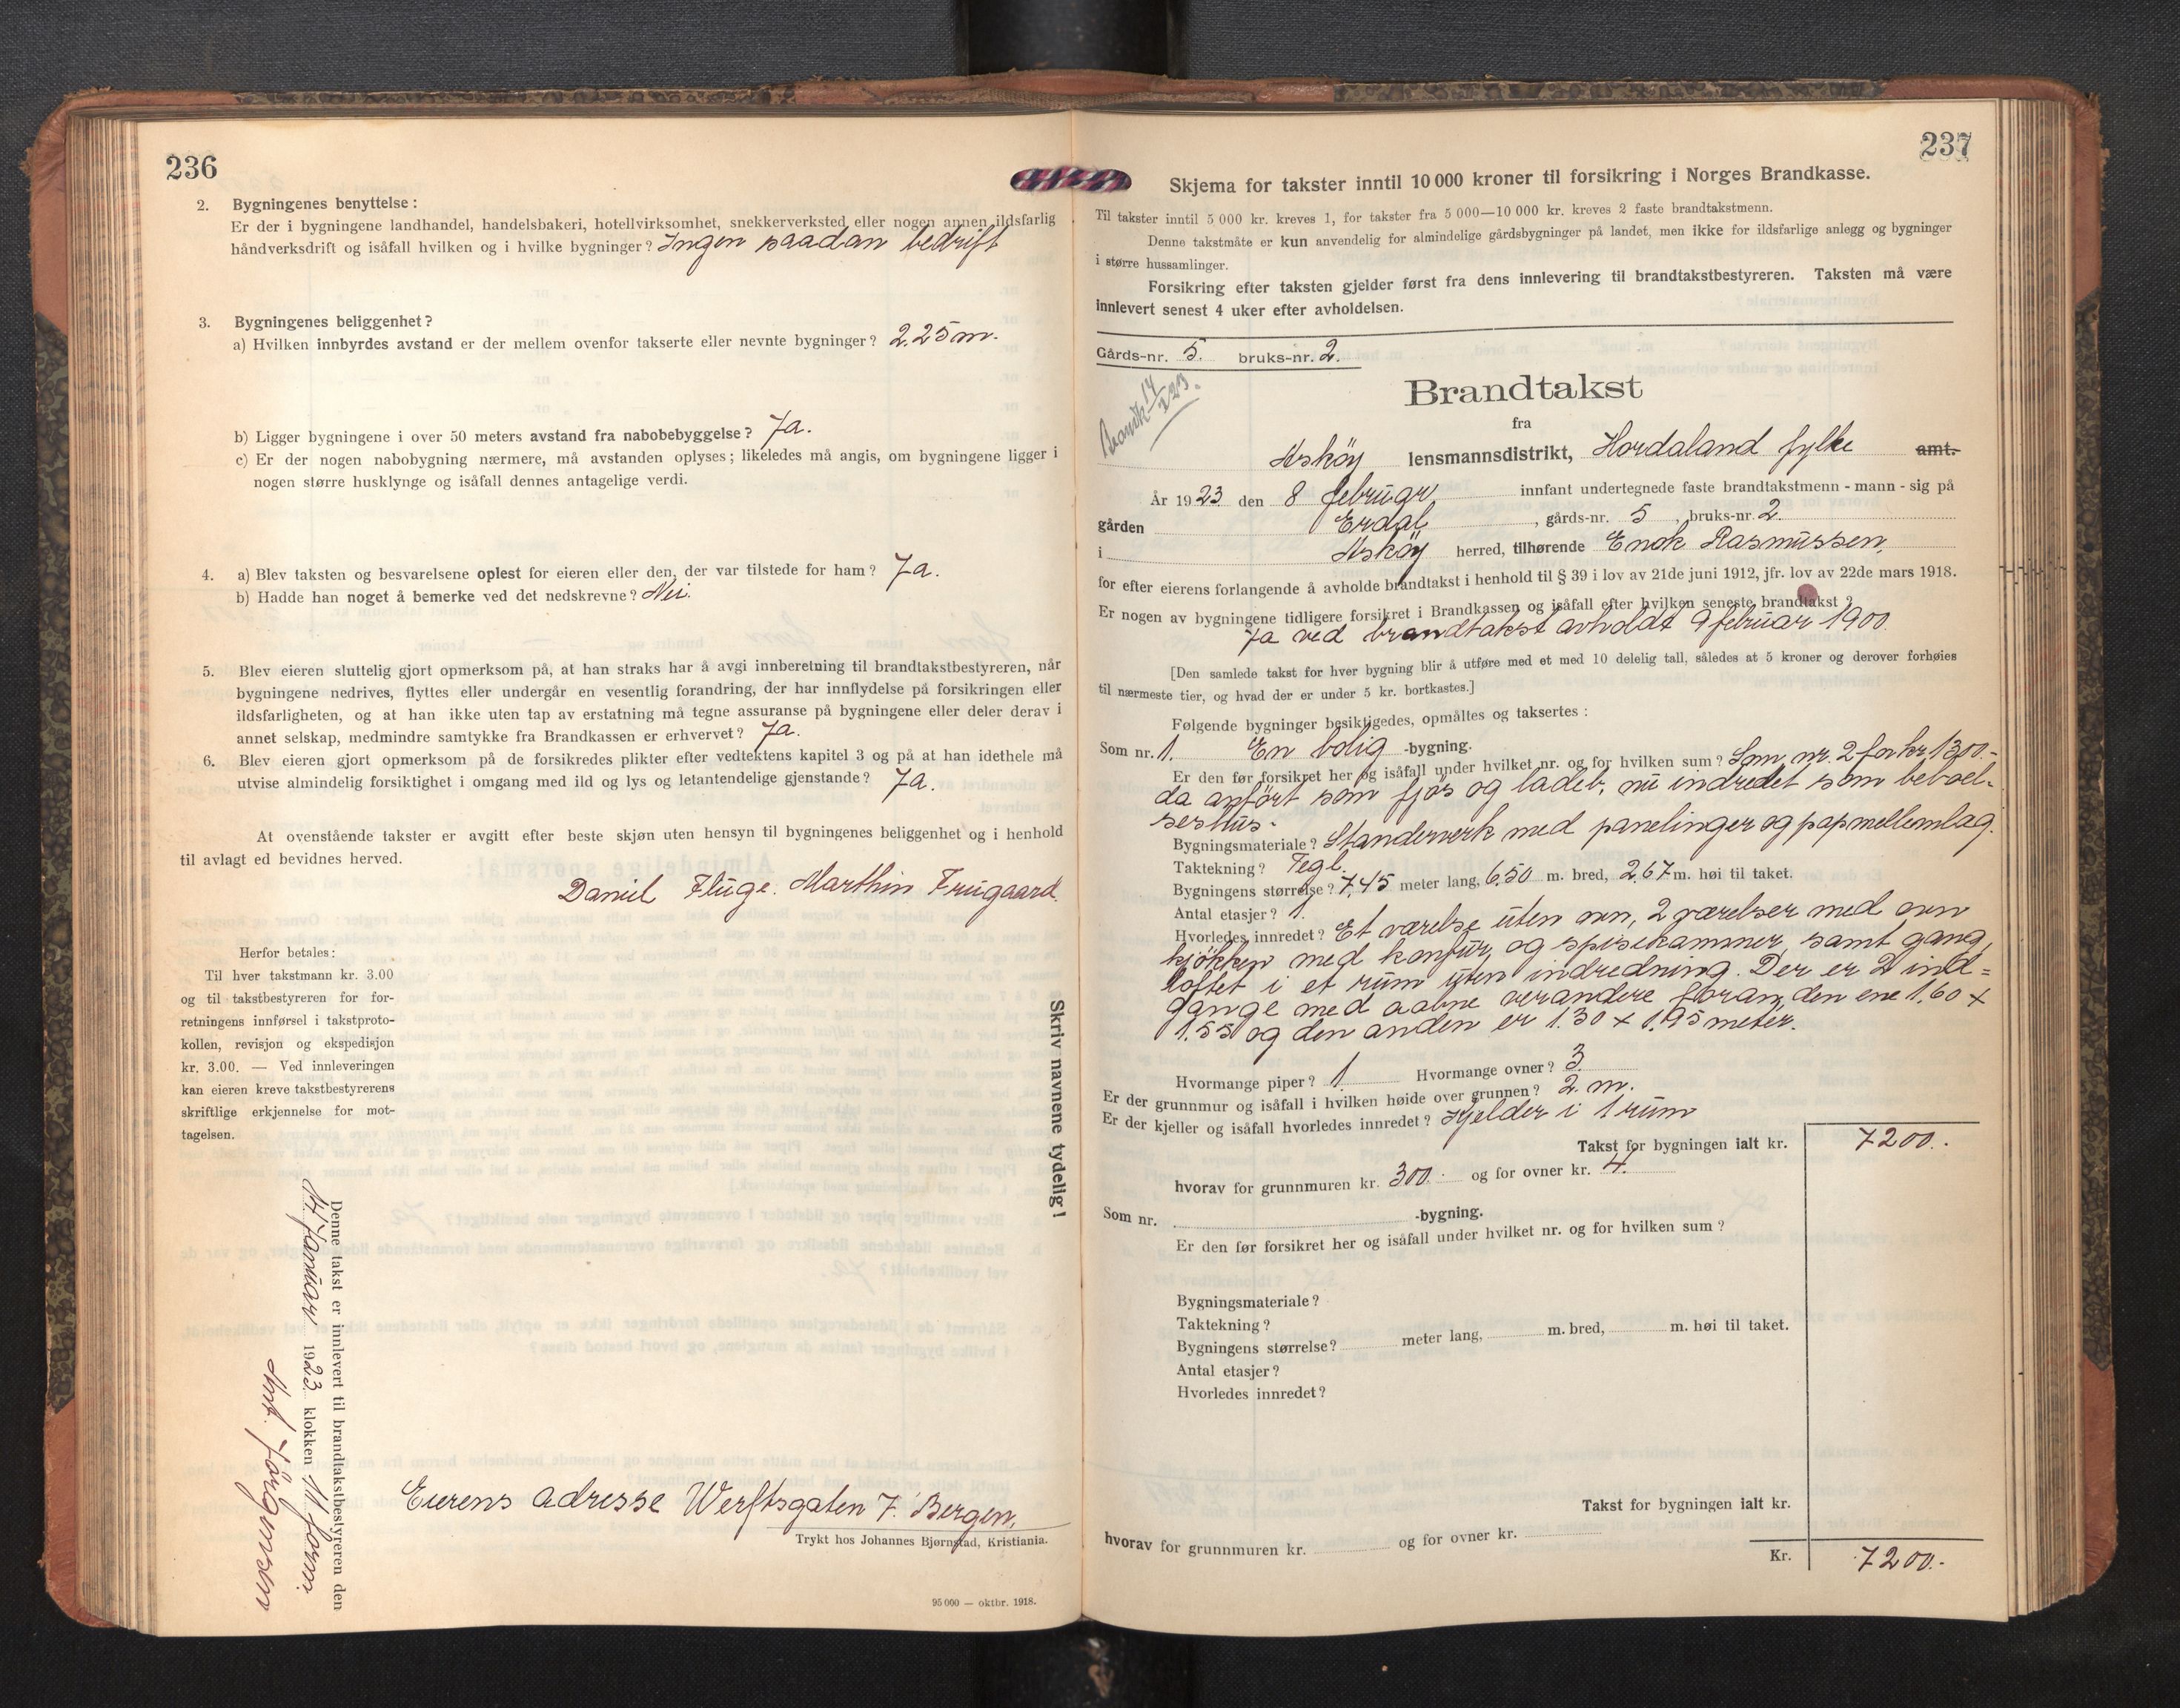 236
2. Bygningenes benyttelse:
Er der i bygningene landhandel, handelsbakeri, hotellvirksomhet, snekkerverksted eller nogen annen ildsfarlig
håndverksdrift og isåfall hvilken og i hvilke bygninger? Ingen saadan bedrift
3. Bygningenes beliggenhet?
a) Hvilken innbyrdes avstand er der mellem ovenfor takserte eller nevnte bygninger? 2.25 m.
b) Ligger bygningene i over 50 meters avstand fra nabobebyggelse? Ja.
c) Er der nogen nabobygning nærmere, må avstanden oplyses; likeledes må angis, om bygningene ligger i
nogen større husklynge og isåfall dennes antagelige verdi.
4. a) Blev taksten og besvarelsene oplest for eieren eller den, der var tilstede for ham? Ja.
b) Hadde han noget å bemerke ved det nedskrevne? Nei.
5. Blev eieren sluttelig gjort opmerksom på, at han straks har å avgi innberetning til brandtakstbestyreren, når
bygningene nedrives, flyttes eller undergår en vesentlig forandring, der har innflydelse på forsikringen eller
ildsfarligheten, og at han ikke uten tap av erstatning må tegne assuranse på bygningene eller deler derav i
annet selskap, medmindre samtykke fra Brandkassen er erhvervet? Ja.
6. Blev eieren gjort opmerksom på de forsikredes plikter efter vedtektens kapitel 3 og på at han idethele må
utvise almindelig forsiktighet i omgang med ild og lys og letantendelige gjenstande? Ja.
At ovenstående takster er avgitt efter beste skjøn uten hensyn til bygningenes beliggenhet og i henhold
til avlagt ed bevidnes herved.
Daniel Fluge. Marthin Frugaard.
Herfor betales:
Til hver takstmann kr. 3.00
og til takstbestyreren for for-
retningens innførsel i takstproto-
kollen, revisjon og ekspedisjon
kr. 3.00. — Ved innleveringen
kan eieren kreve takstbestyrerens
skriftlige erkjennelse for mot-
tagelsen.
Skriv navnene tydelig!
Denne takst er innlevert til brandtakstbestyreren den
14 Januar 1923 klokken 11 form.
Jørgensen
Eierens adresse Werftsgaten 7. Bergen.
Trykt hos Johannes Bjørnstad, Kristiania.
95 000 — oktbr. 1918.
237
Skjema for takster inntil 10 000 kroner til forsikring i Norges Brandkasse.
Til takster inntil 5 000 kr. kreves 1, for takster fra 5 000—10 000 kr. kreves 2 faste brandtakstmenn.
Denne takstmåte er kun anvendelig for almindelige gårdsbygninger på landet, men ikke for ildsfarlige anlegg og bygninger
i større hussamlinger.
Forsikring efter taksten gjelder først fra dens innlevering til brandtakstbestyreren. Taksten må være
innlevert senest 4 uker efter avholdelsen.
Gårds-nr. 5. bruks-nr. 2.
Brandtakst
fra
Askøy lensmannsdistrikt, Hordaland fylke amt.
År 1923 den 8 februar innfant undertegnede faste brandtakstmenn - mann - sig på
gården Erdal, gårds-nr. 5, bruks-nr. 2.
i Askøy herred, tilhørende Enok Rasmussen,
for efter eierens forlangende å avholde brandtakst i henhold til § 39 i lov av 21de juni 1912, jfr. lov av 22de mars 1918.
Er nogen av bygningene tidligere forsikret i Brandkassen og isåfall efter hvilken seneste brandtakst?
Ja ved brandtakst avholdt 9 februar 1900.
[Den samlede takst for hver bygning blir å utføre med et med 10 delelig tall, således at 5 kroner og derover forhøies
til nærmeste tier, og hvad der er under 5 kr. bortkastes.]
Følgende bygninger besiktigedes, opmåltes og taksertes:
Som nr. 1. En bolig -bygning.
Er den før forsikret her og isåfall under hvilket nr. og for hvilken sum? Som nr. 2 for kr. 1300.-
da anført som fjøs og ladeb. nu indredet som beboel-
seshus.
Bygningsmateriale? Standerverk med panelinger og papmellemlag.
Taktekning? Tegl.
Bygningens størrelse? 7.45 meter lang, 6.50 m. bred, 2.67 m. høi til taket.
Antal etasjer? 1.
Hvorledes innredet? Et værelse uten ovn, 2 værelser med ovn
kjøkken med komfur, og spisekammer, samt gang,
loftet i et rum uten indredning. Der er 2 ind=
gange med aabne verandere foran, den ene 1.60 x
1.55 og den anden er 1.30 x 1.95 meter.
Hvormange piper? 1. Hvormange ovner? 3.
Er der grunnmur og isåfall i hvilken høide over grunnen? 2. m.
Er der kjeller og isåfall hvorledes innredet? Kjelder i 1 rum
Takst for bygningen ialt kr. 7200.-
hvorav for grunnmuren kr. 300.- og for ovner kr. 4.
Som nr. -bygning.
Er den før forsikret her og isåfall under hvilket nr. og for hvilken sum?
Bygningsmateriale?
Taktekning?
Bygningens størrelse? meter lang, m. bred, m. høi til taket.
Antal etasjer?
Hvorledes innredet?
Takst for bygningen ialt kr.
hvorav for grunnmuren kr. og for ovner kr.
Kr. 7200.-